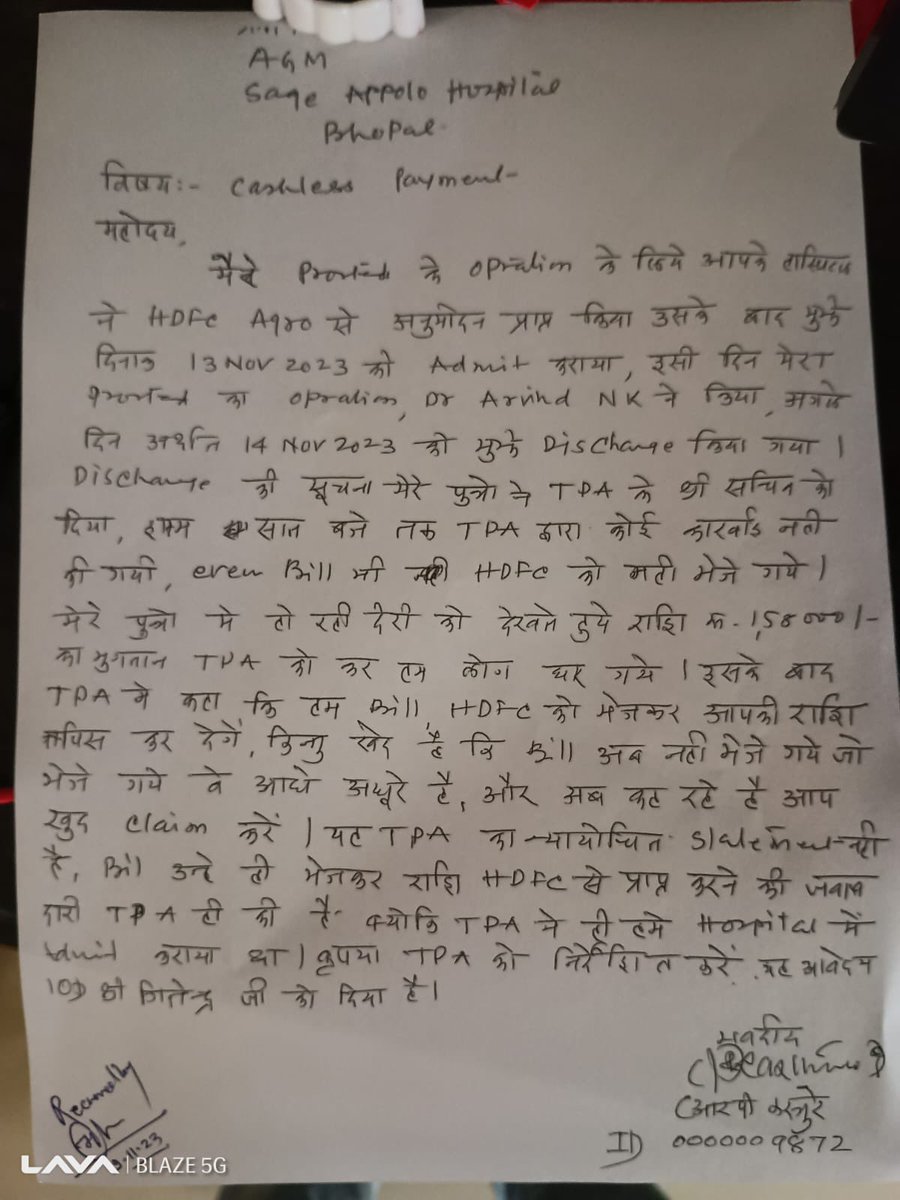 AGM
Sage Appolo Hospital
Bhopal.
विषय:- Cashless Payment-
महोदय,
मैने के opration के लिये आपके हास्पिटल
ने HDFC Agro से अनुमोदन प्राप्त किया उसके बाद मुझे
दिनांक 13 Nov 2023 को Admit कराया, इसी दिन मेरा
का opration, Dr Arvind NK ने किया, अगले
दिन अर्थात 14 Nov 2023 को मुझे Discharge किया गया।
Discharge की सूचना मेरे पुत्रो ने TPA के श्री सचिन को
दिया, सात बजे तक TPA द्वारा कोई कारवाई नही
की गयी, even Bill भी HDFC को नही भेजे गये।
मेरे पुत्रो ने हो रही देरी को देखते हुये राशि रू. 1,58000/-
का भुगतान TPA को कर हम लोग घर गये। इसके बाद
TPA ने कहा कि हम Bill, HDFC को भेजकर आपकी राशि
वापिस कर देगें, किन्तु खेद है कि Bill अब नही भेजे गये जो
भेजे गये वे आधे अधूरे है, और अब कह रहे है आप
खुद claim करें। यह TPA का न्यायोचित Statement नही
है, Bill उन्हे ही भेजकर राशि HDFC से प्राप्त करने की जवाब
दारी TPA ही की है- क्योकि TPA ने ही हमे Hospital में
Admit कराया था। कृपया TPA को निर्देशित करें. यह आवेदन
श्री जितेन्द्र जी को दिया है।
भवदीय
(आरपी कस्तुरे
ID 0000009872
.11.23
LAVA | BLAZE 5G